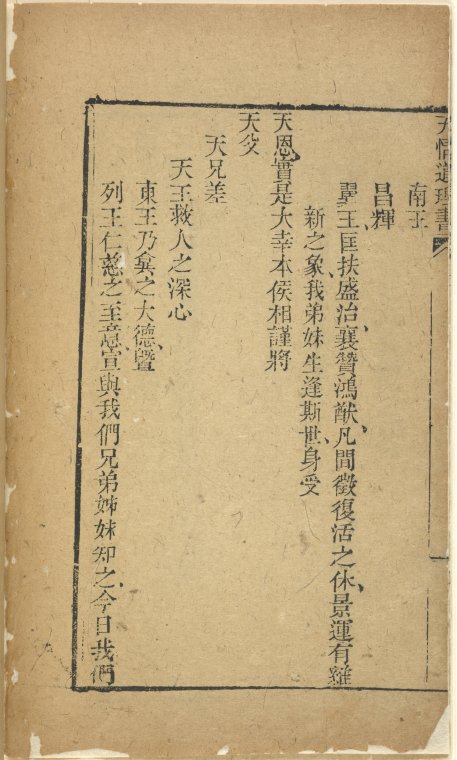 天情道理書
南王
昌輝
翼王匡扶盛治襄贊鴻猷凡間徵復活之休景運有維
新之象我弟妹生逢斯世身受
天恩實是大幸本侯相謹將
天父
天兄差
天王救人之深心
東王乃之大德暨
列王仁慈之至意宣與我們兄弟姊妹知之今日我們